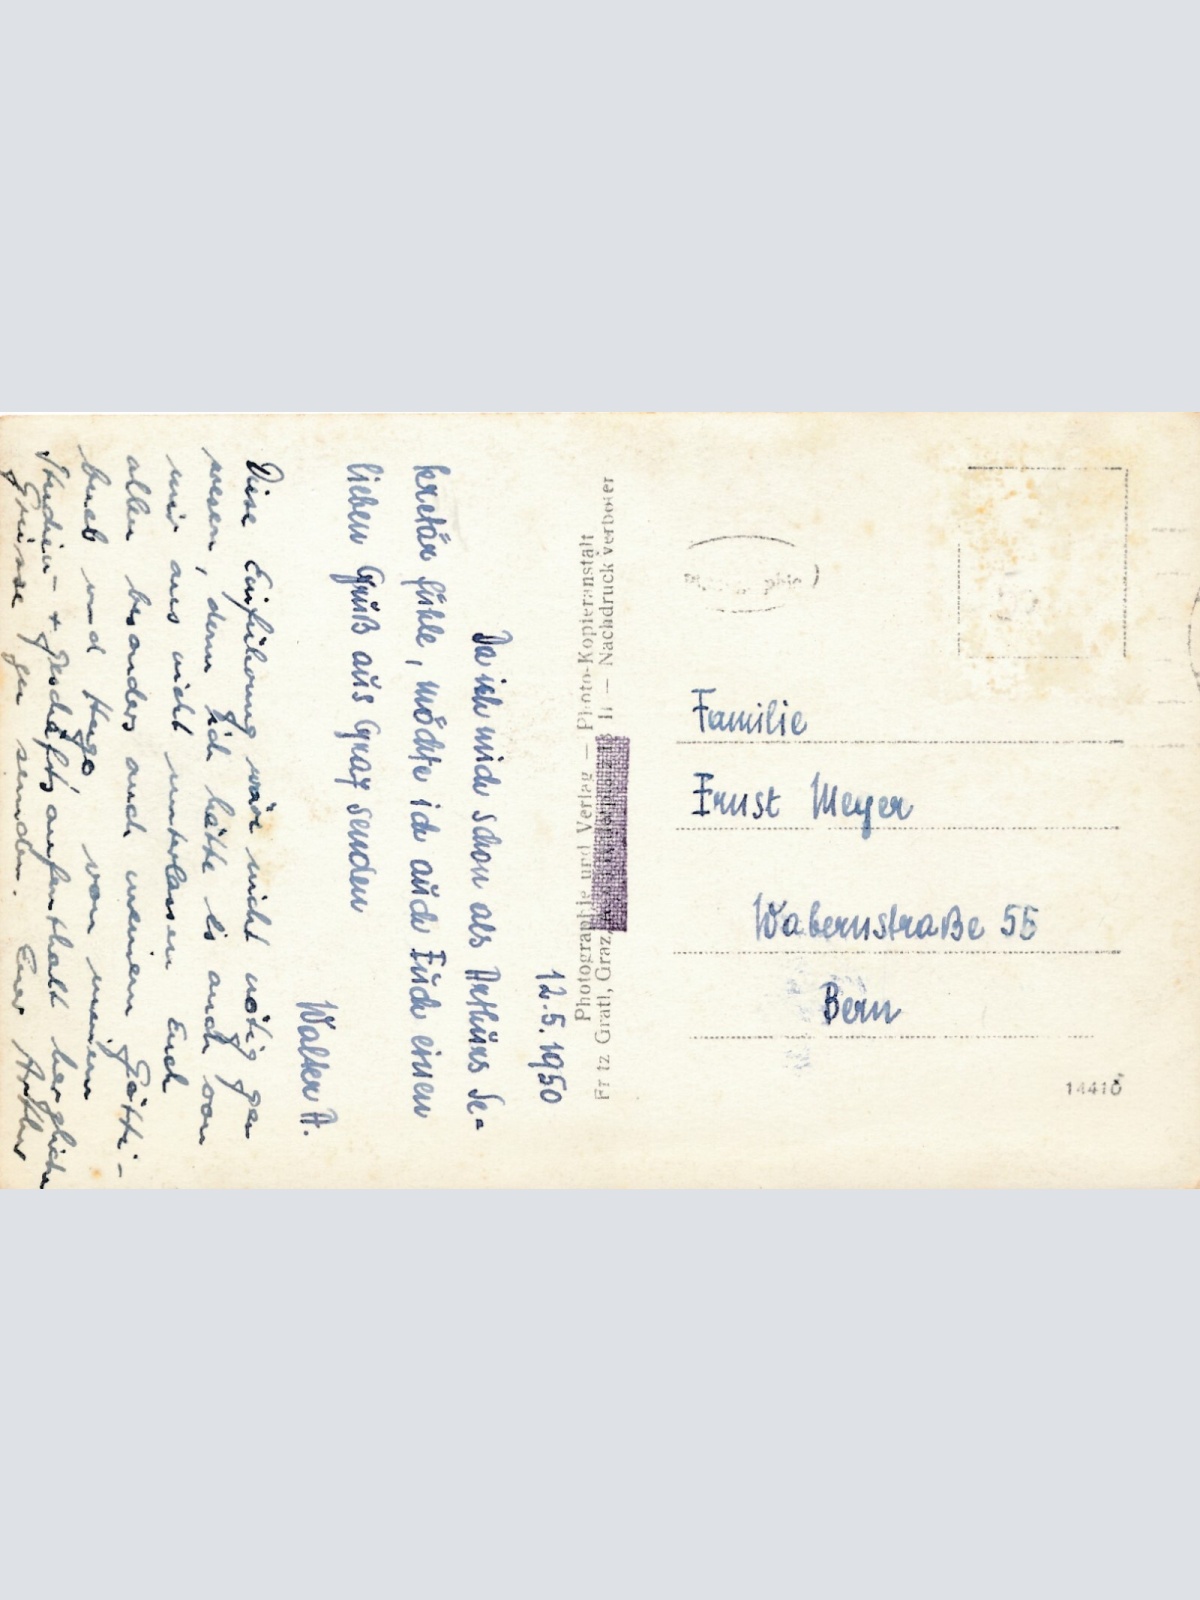 12.5.1950
Da ich mich schon als Arthurs Se-
kretär fühle, möchte ich auch Euch einen
lieben Gruß aus Graz senden
Walter A.
Diese Einführung wäre nicht nötig ge
wesen, denn ich hätte es auch von
mir aus nicht unterlassen Euch
allen besonders auch meinem Götti-
bueb und Hugo von meinem
Studien- + Geschäftsaufenthalt herzliche
Grüsse zu senden. Euer Arthur
Photographie und Verlag — Photo-Kopieranstalt
Fritz Gratl, Graz, II — Nachdruck verboten
Familie
Ernst Meyer
Wabernstraße 55
Bern
14410